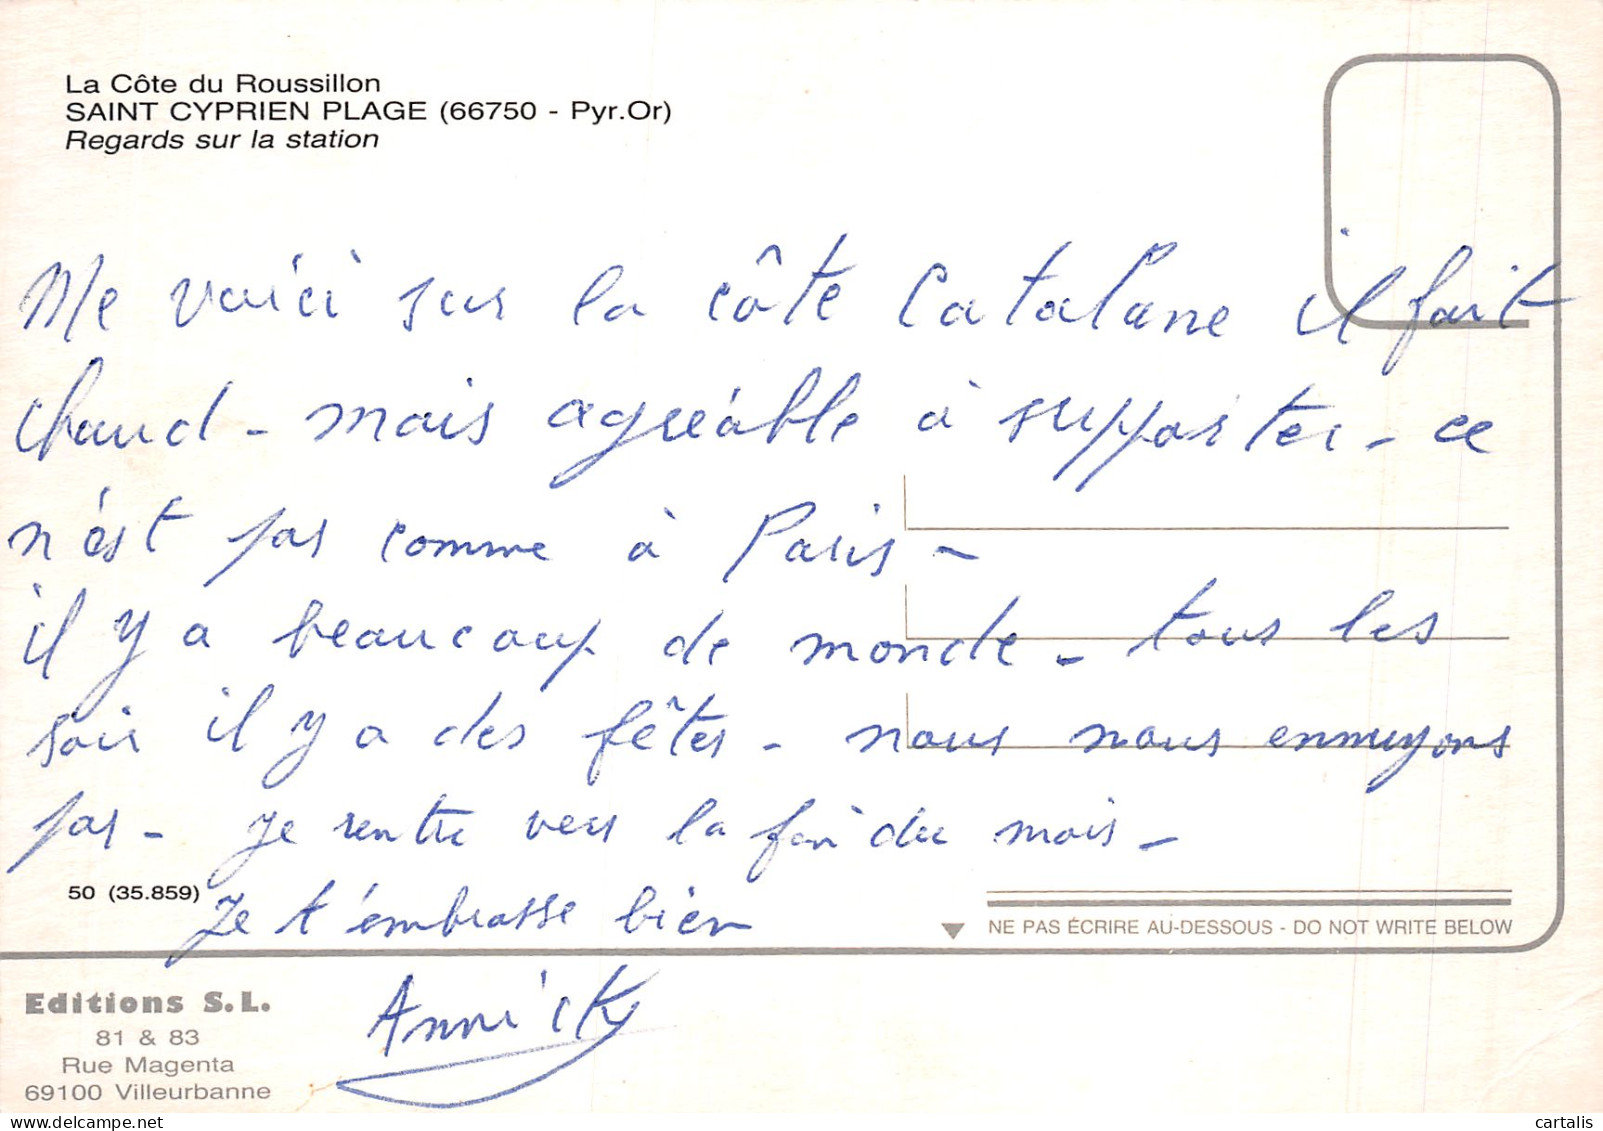 La Côte du Roussillon
SAINT CYPRIEN PLAGE (66750 - Pyr.Or)
Regards sur la station
Me voici sur la côte Catalane il fait
chaud - mais agréable à supporter - ce
n'est pas comme à Paris -
il y a beaucoup de monde - tous les
soir il y a des fêtes - nous nous ennuyons
pas - je rentre vers la fin du mois -
50 (35.859)
Je t'embrasse bien
NE PAS ÉCRIRE AU-DESSOUS - DO NOT WRITE BELOW
Annick
Editions S.L.
81 & 83
Rue Magenta
69100 Villeurbanne
cartalis